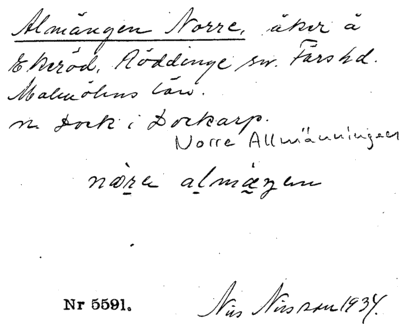 Almängen Norre, åker å
Ekeröd, Röddinge sn. Färs hd.
Malmöhus län.
Dock i Dockarp.
Norre Allmänningen
næra almæŋen
Nr 5591.
Nils Nilsson 1934.